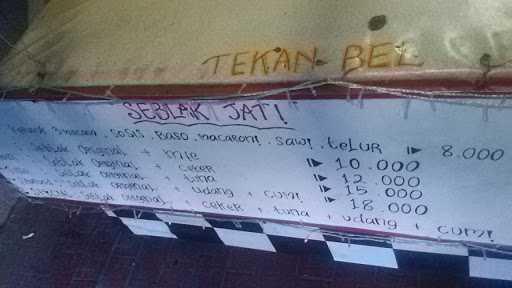 TEKAN BEL
SEBLAK JATI
Kerupuk 3 macam, SOSIS, BASO, macaroni, SAWI, teLUR 8.000
SebLAK ORIGINAL + mie 10.000
SebLAK ORIGINAL + CekeR 12.000
SebLAK ORIGINAL + tuna 15.000
SebLAK ORIGINAL + udang + cumi 18.000
SebLAK ORIGINAL + cekeR + tuna + udang + cumi